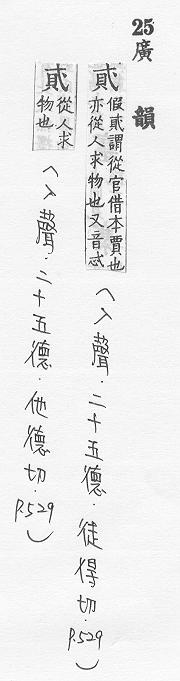 25廣 韻
貣假貳謂從官借本賈也亦從人求物也又音忒(入聲．二十五德．徒得切．P.529)
貣從人求物也(入聲．二十五德．他德切．P.529)